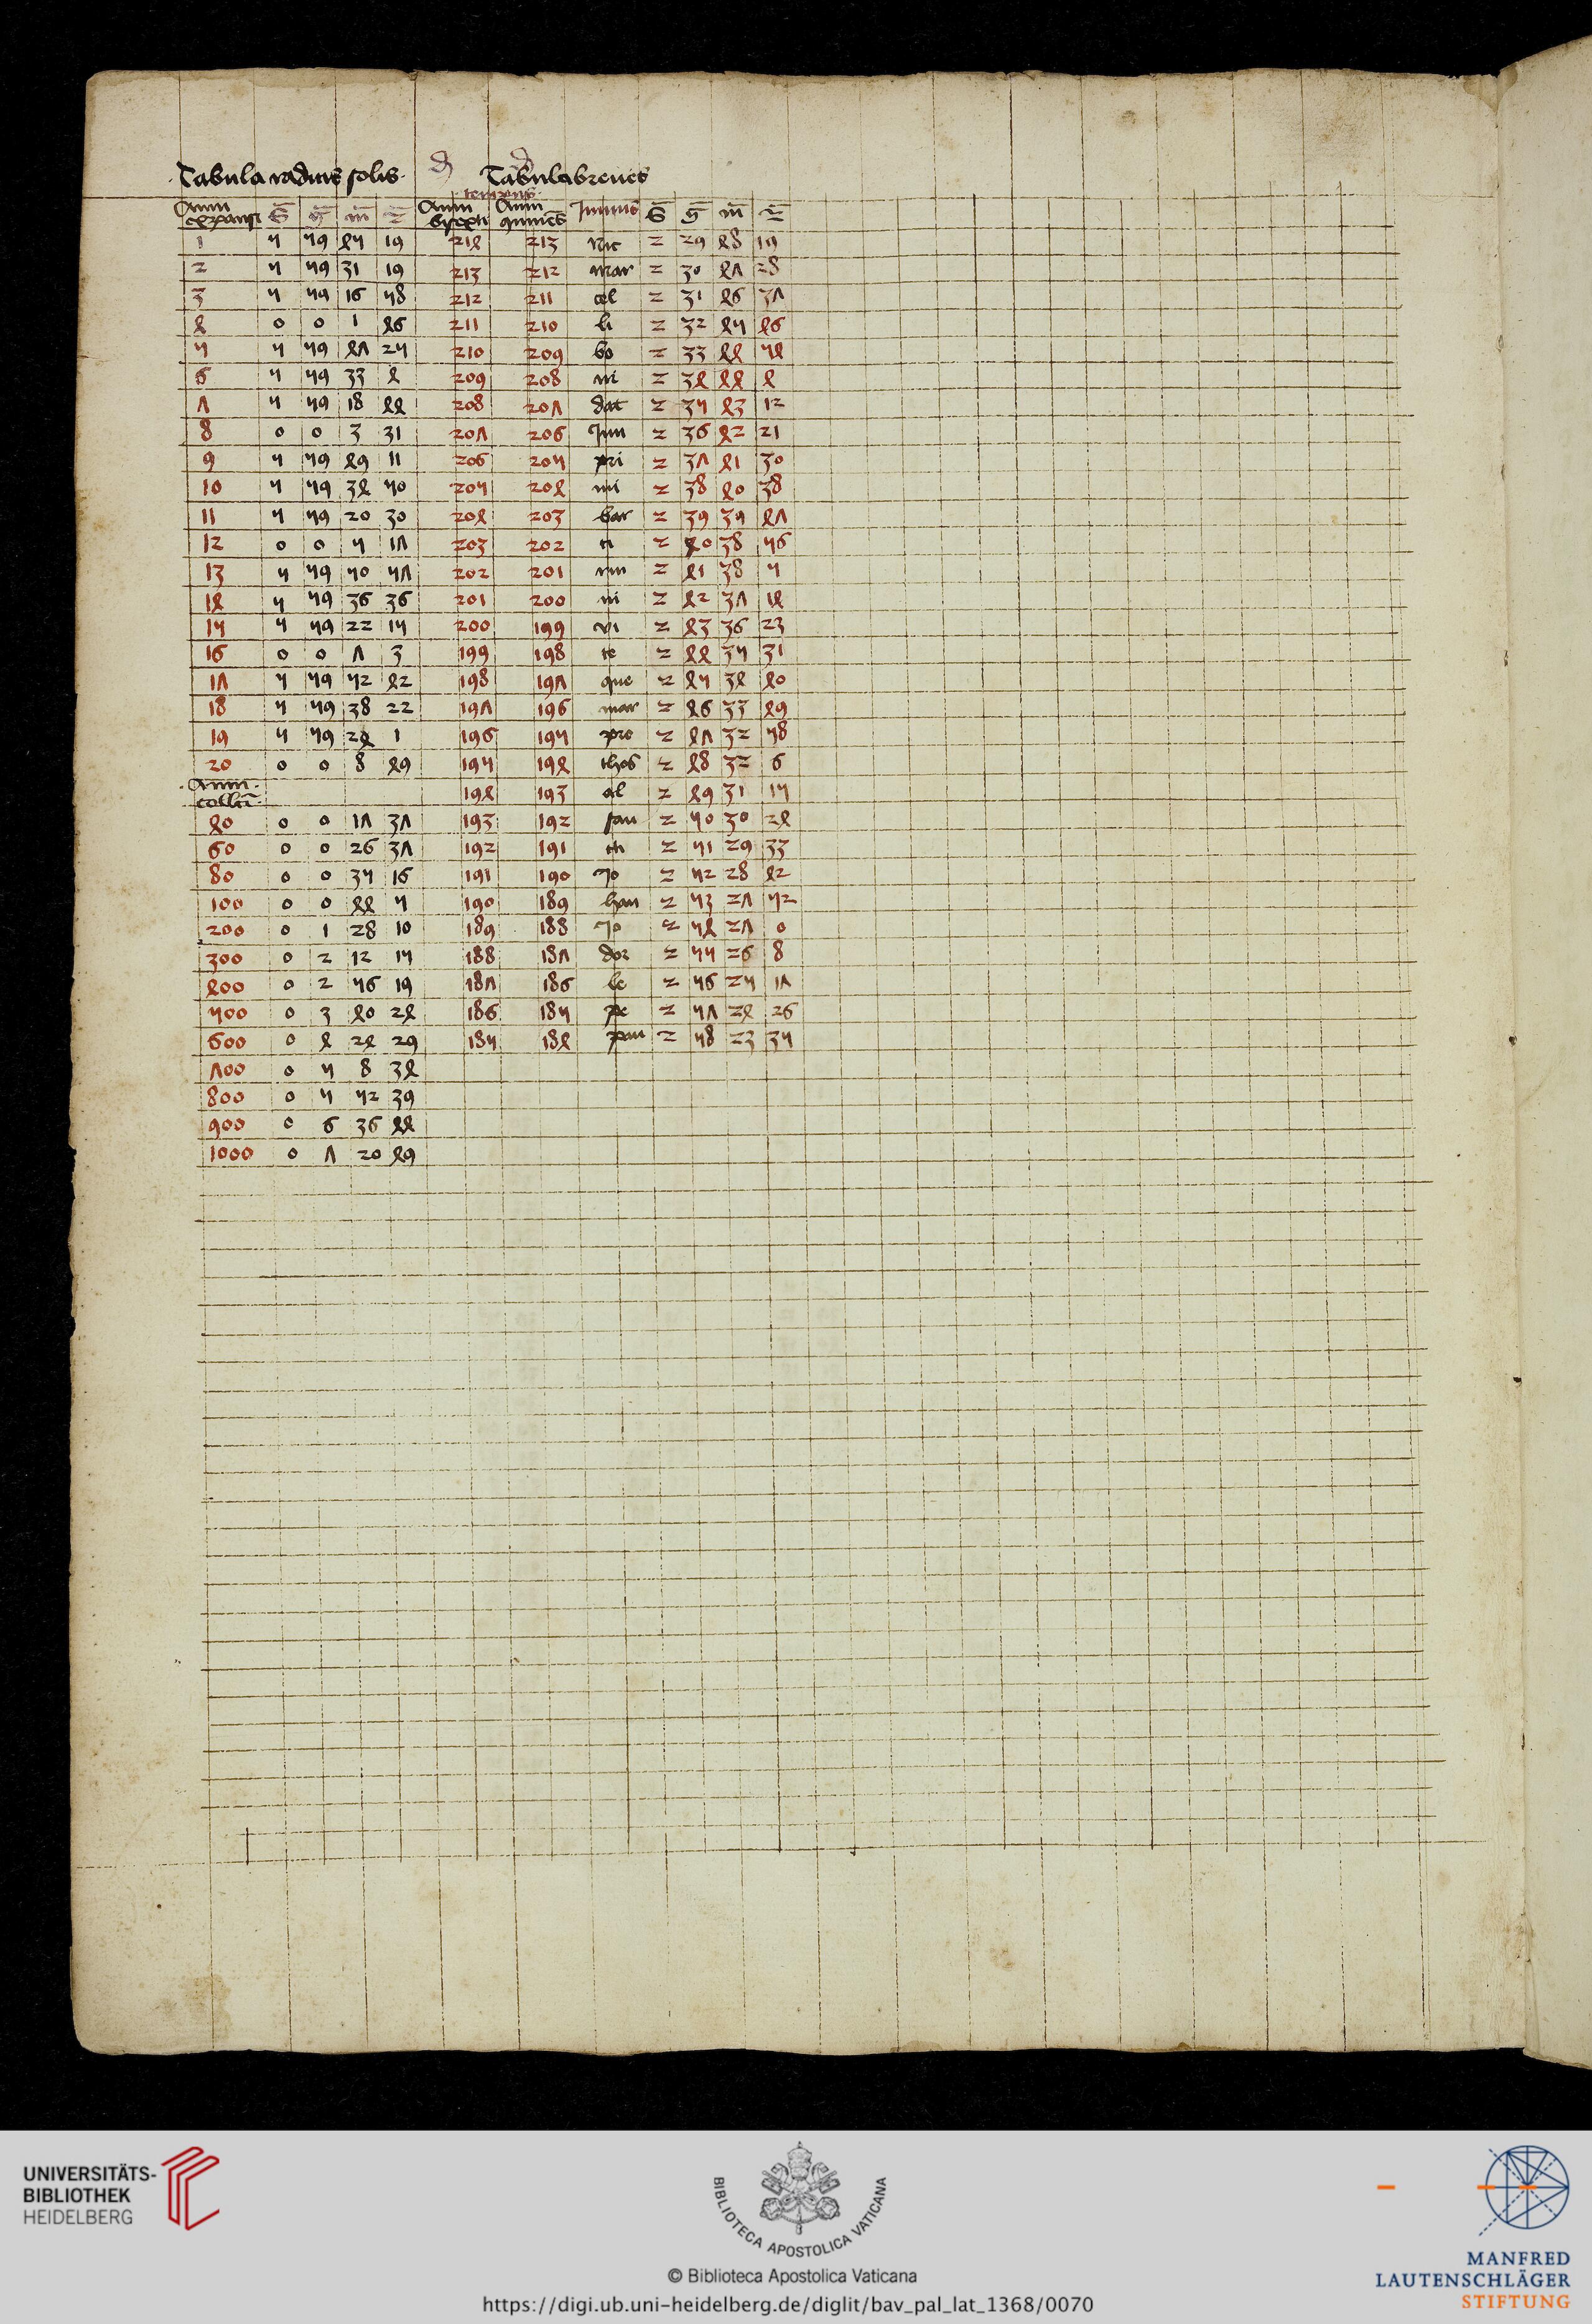 Tabula radicis solis Tabula breuis
temporis
Anni expansi S g m 2 Anni bisexti Anni Junius S g m 2
1 5 59 45 19 214 213 nic 2 29 48 19
2 5 59 31 19 213 212 mar 2 30 47 28
3 5 59 16 58 212 211 cel 2 31 46 37
4 0 0 1 46 211 210 li 2 32 45 46
5 5 59 47 25 210 209 bo 2 33 44 54
6 5 59 33 4 209 208 ni 2 34 44 4
7 5 59 18 44 208 207 dat 2 35 43 12
8 0 0 3 31 207 206 Jun 2 36 42 21
9 5 59 49 11 206 205 pri 2 37 41 30
10 5 59 34 50 205 204 mi 2 38 40 38
11 5 59 20 30 204 203 bar 2 39 39 47
12 0 0 5 17 203 202 ti 2 40 38 56
13 5 59 50 57 202 201 2 41 38 5
14 5 59 36 36 201 200 ni 2 42 37 14
15 5 59 22 15 200 199 vi 2 43 36 23
16 0 0 7 3 199 198 te 2 44 35 31
17 5 59 52 42 198 197 que 2 45 34 40
18 5 59 38 22 197 196 mar 2 46 33 49
19 5 59 24 1 196 195 pro 2 47 32 58
20 0 0 8 49 195 194 thos 2 48 32 6
Anni collecti 194 193 al 2 49 31 15
40 0 0 17 37 193 192 san 2 50 30 24
60 0 0 26 37 192 191 cti 2 51 29 33
80 0 0 35 16 191 190 Jo 2 52 28 42
100 0 0 44 5 190 189 han 2 53 27 52
200 0 1 28 10 189 188 Jo 2 54 27 0
300 0 2 12 15 188 187 dor 2 55 26 8
400 0 2 56 19 187 186 le 2 56 25 17
500 0 3 40 24 186 185 pe 2 57 24 26
600 0 4 24 29 185 184 pau 2 58 23 35
700 0 5 8 34
800 0 5 52 39
900 0 6 36 44
1000 0 7 20 49
UNIVERSITÄTS-
BIBLIOTHEK
HEIDELBERG
BIBLIOTECA APOSTOLICA VATICANA
© Biblioteca Apostolica Vaticana
https://digi.ub.uni-heidelberg.de/diglit/bav_pal_lat_1368/0070
MANFRED
LAUTENSCHLÄGER
STIFTUNG